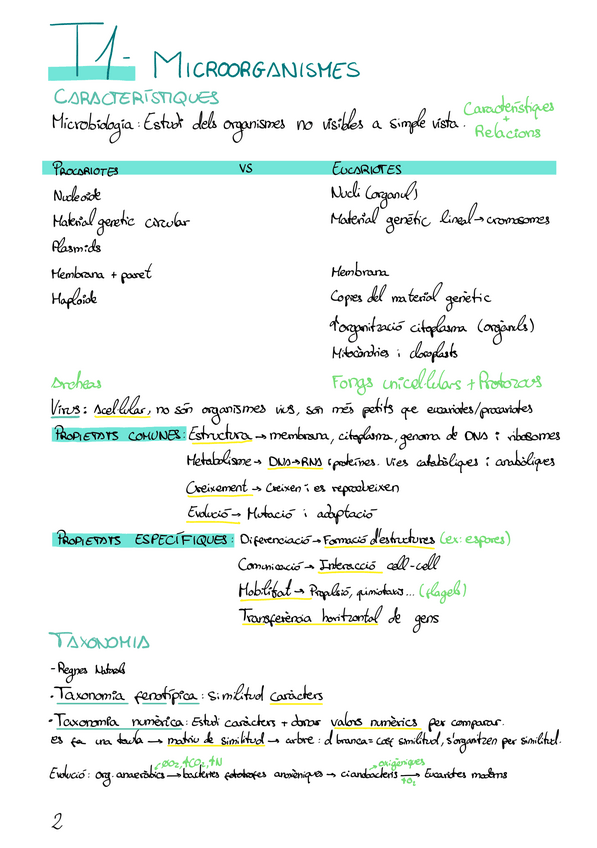 T1- MICROORGANISMES
CARACTERÍSTIQUES
Microbiologia: Estudi dels organismes no visibles a simple vista. Característiques + Relacions
PROCARIOTES VS EUCARIOTES
Nucleoide Nucli (orgànul)
Material genetic circular Material genètic lineal → cromosomes
Plasmids
Membrana + paret Membrana
Haploide Copies del material genètic
↑organització citoplasma (orgànuls)
Mitocòndries i cloroplasts
Archeas Fongs unicel·lulars + Protozous
Virus: Acel·lular, no són organismes vius, són més petits que eucariotes/procariotes
PROPIETATS COMUNES: Estructura → membrana, citoplasma, genoma de DNA i ribosomes
Metabolisme → DNA→RNA i proteïnes. Vies catabòliques i anabòliques
Creixement → Creixen i es reprodueixen
Evolució → Mutació i adaptació
PROPIETATS ESPECÍFIQUES: Diferenciació → Formació d'estructures (ex: espores)
Comunicació → Interacció cell-cell
Mobilitat → Propulsió, quimiotaxis... (flagels)
Transferència horitzontal de gens
TAXONOMIA
- Regnes Naturals
- Taxonomia fenotípica: similitud caràcters
- Taxonomia numèrica: Estudi caràcters + donar valors numèrics per comparar.
es fa una taula → matriu de similitud → arbre: d branca = similitud, s'organitzen per similitud.
Evolució: org. anaeròbics → bacteries fototrofes anoxèniques → cianobacteris → Eucariotes moderns
↑CO₂, ↑N oxigèniques ↑O₂
2